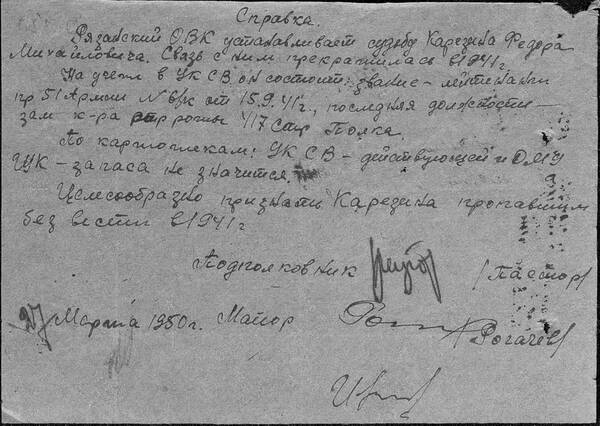 Справка.
Рязанский ОВК устанавливает судьбу Карезина Федора
Михайловича. Связь с ним прекратилась в 1941 г.
На учете в УК СВ он состоит; звание – лейтенант
пр 51 Армии N в/к от 15.9.41 г., последняя должность –
зам к-ра стр роты 417 Стр Полка.
По картотекам: УК СВ – действующей и ОМУ
ЦК – запаса не значится.
Целесообразно признать Карезина пропавшим
без вести в 1941 г
Подполковник /Пастор/
27 Марта 1950 г. Майор /Рогачев/